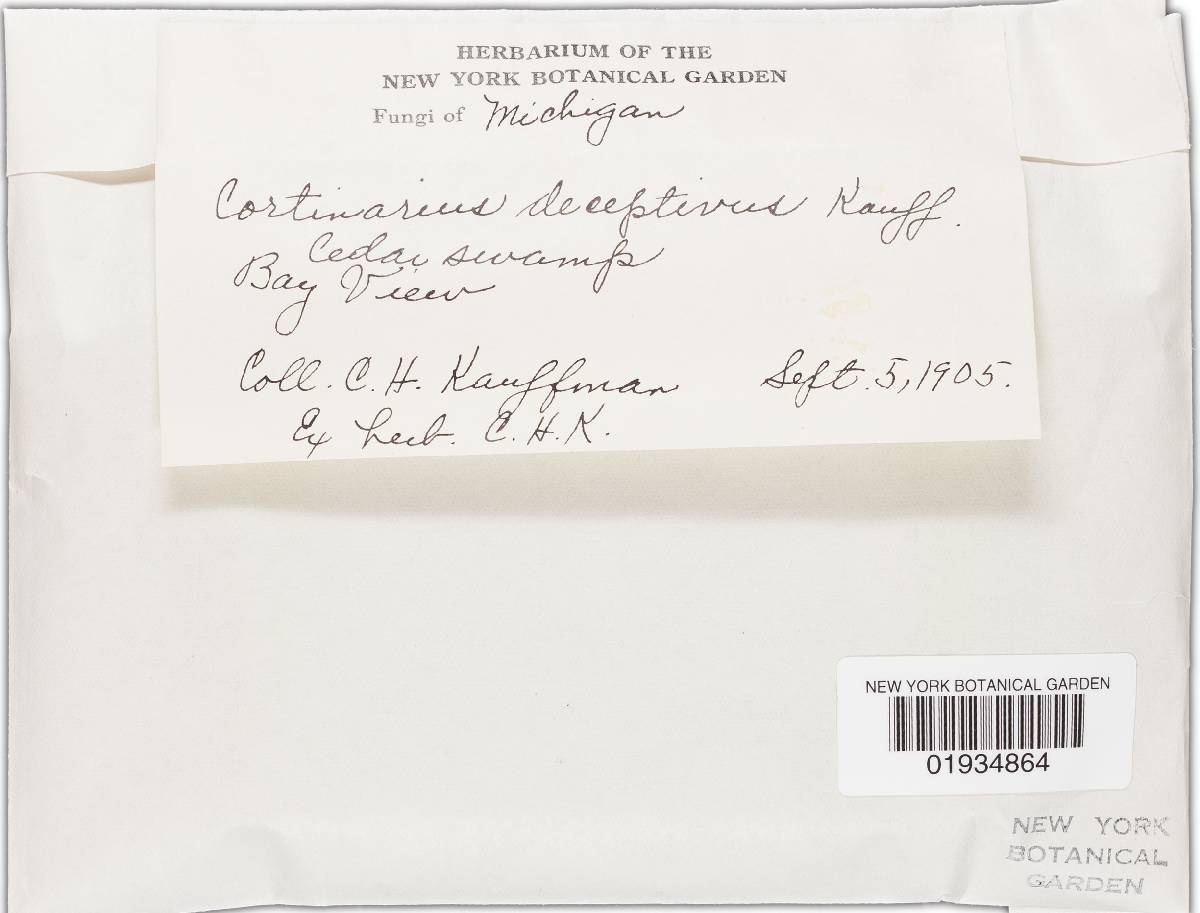 HERBARIUM OF THE
NEW YORK BOTANICAL GARDEN
Fungi of Michigan
Cortinarius deceptivus Kauff.
Cedar swamp
Bay View
Coll. C. H. Kauffman Sept. 5, 1905.
Ex herb. C. H. K.
NEW YORK BOTANICAL GARDEN
01934864
NEW YORK
BOTANICAL
GARDEN